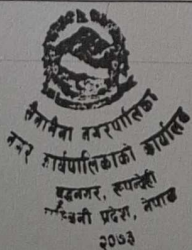 सैनामैना नगरपालिका
नगर कार्यपालिकाको कार्यालय
बुद्धनगर, रूपन्देही
प्रदेश, नेपाल
२०७३